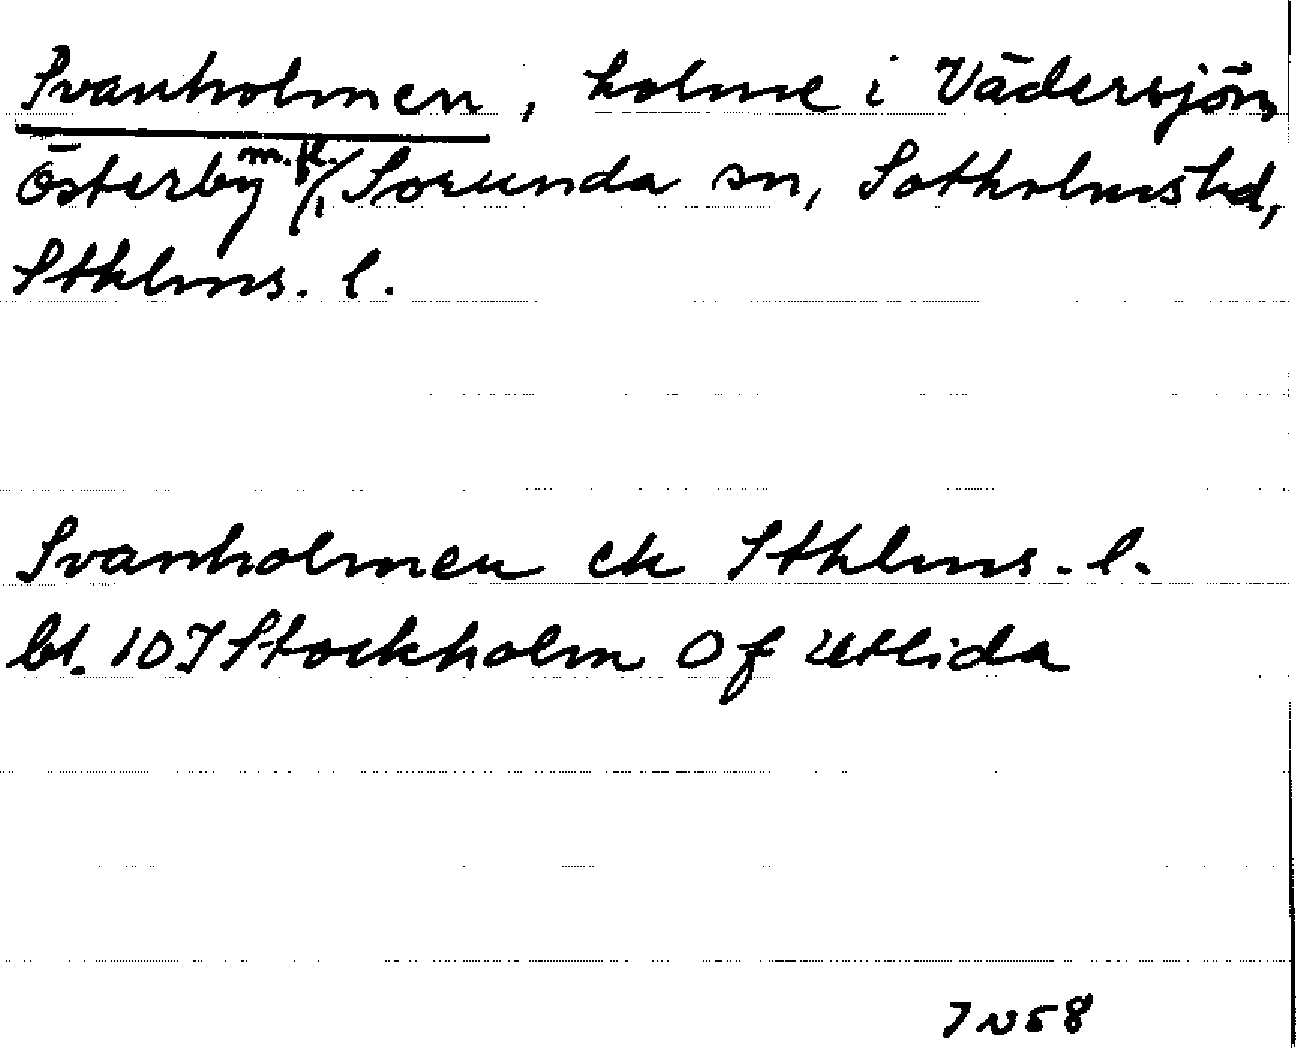 Svanholmen, holme i Vädersjön,
Österby m.fl., Sorunda sn, Sotholms hd,
Sthlms. l.
Svanholmen ek Sthlms. l.
bl. 10 I Stockholm Of Utlida